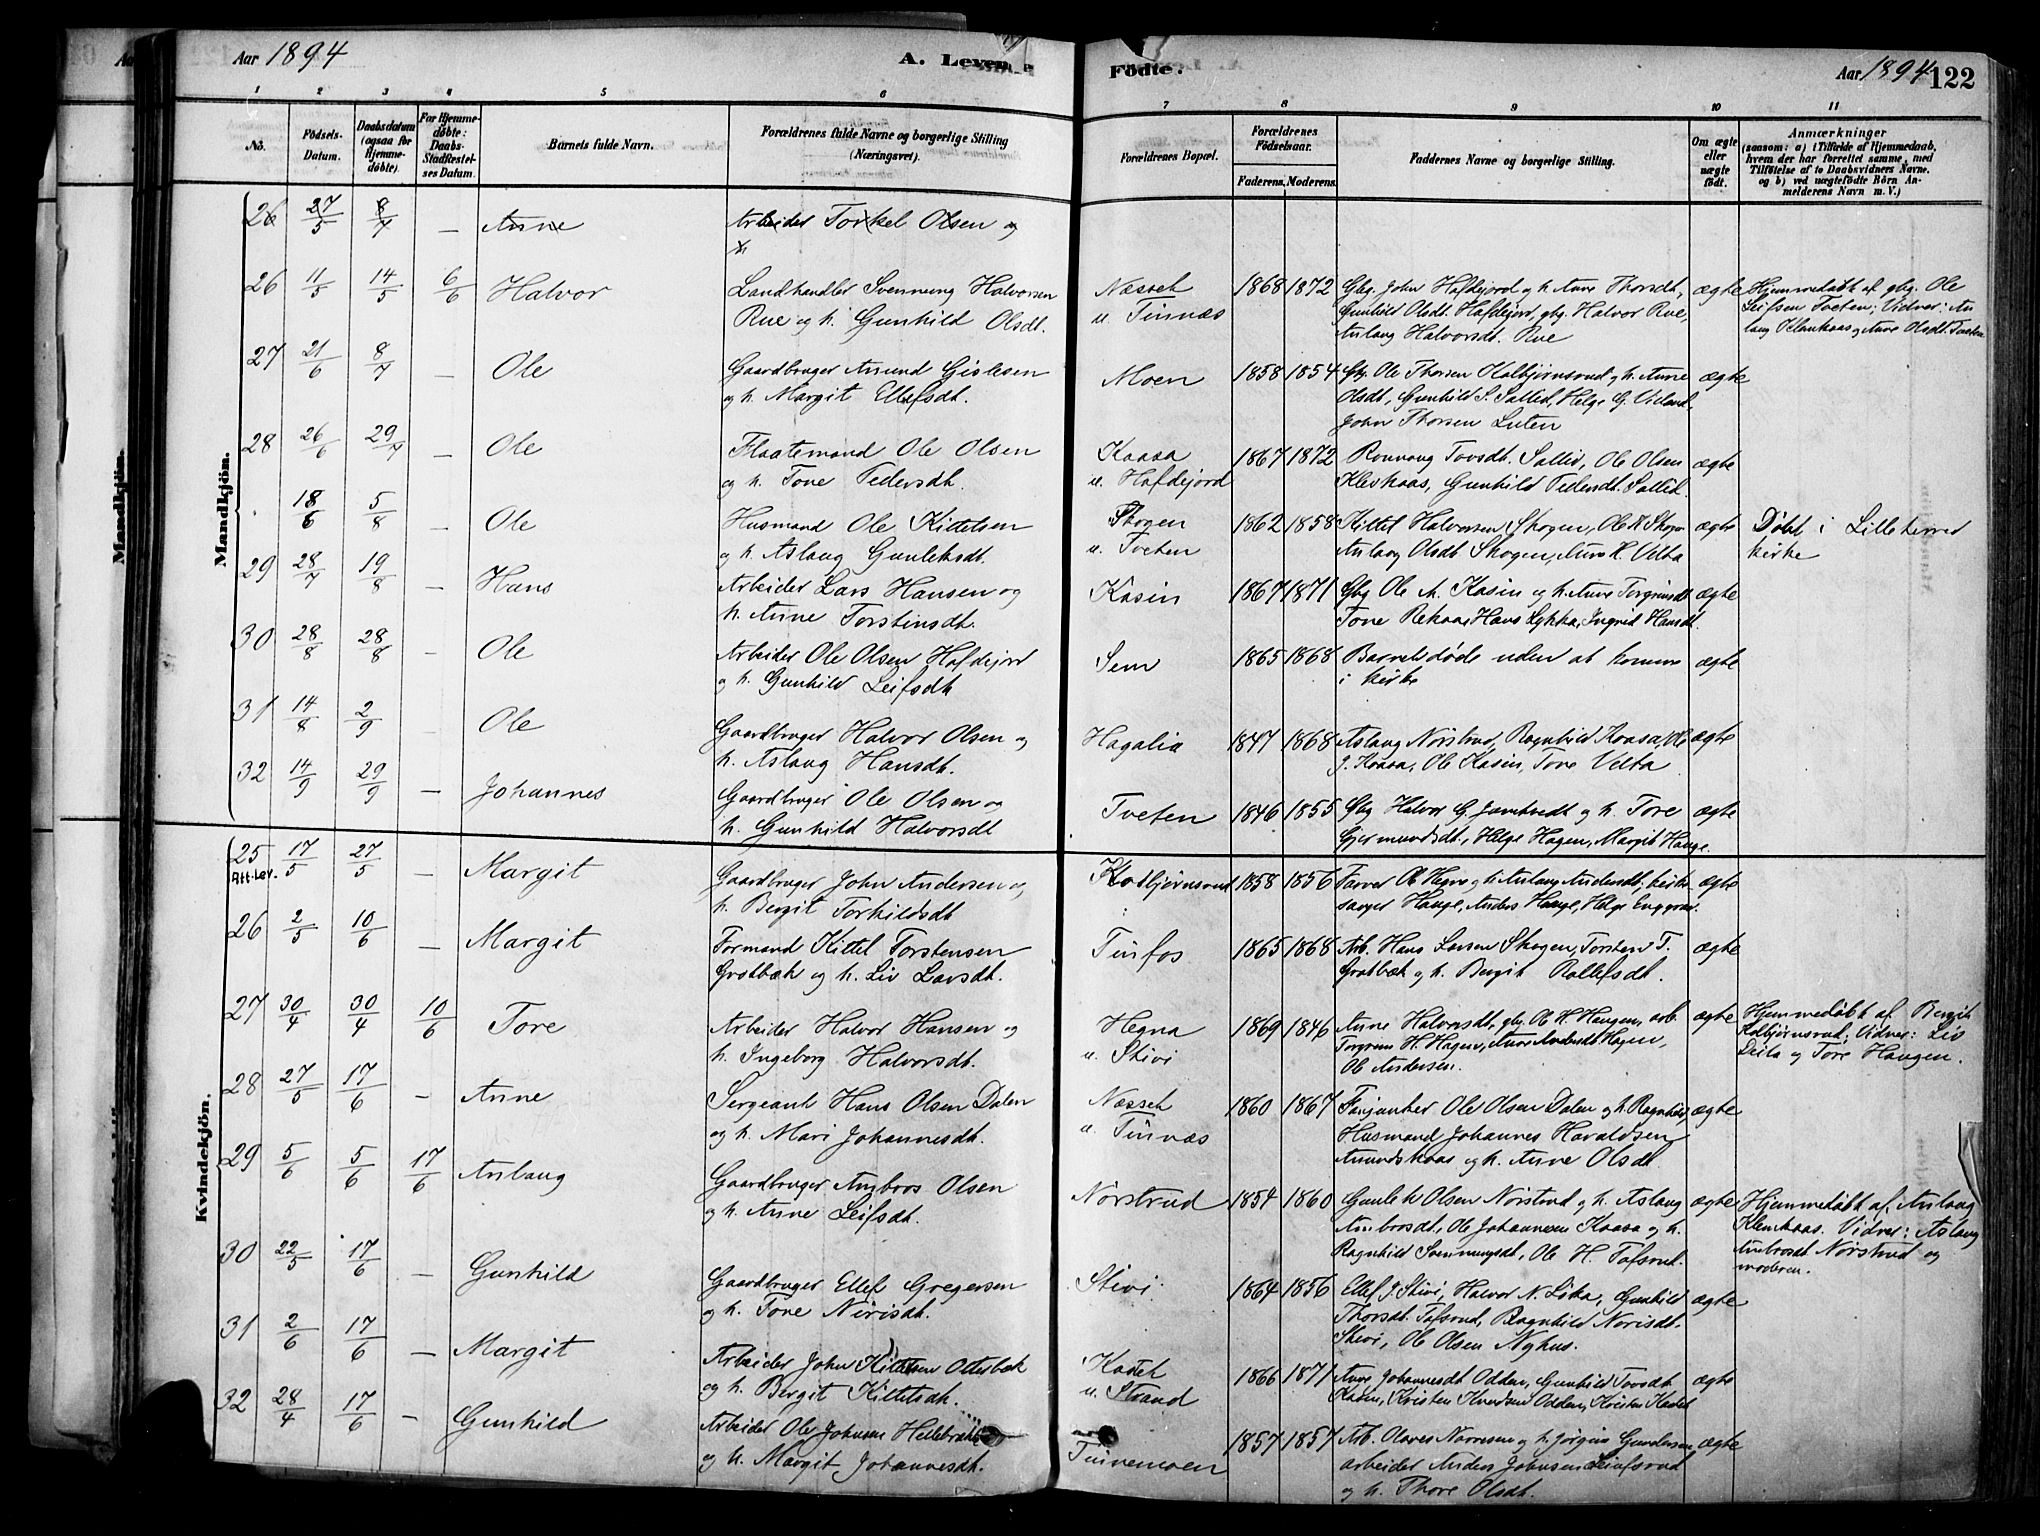 Aar 1894
A. Leven
Födte.
Aar 1894
122
1 2 3 4 5 6 7 8 9 10 11
No.
Födsels-Datum.
Daabsdatum (ogsaa for Hjemme-döbte).
For Hjemme-döbte: Daabs-Stadfæstel-ses Datum.
Barnets fulde Navn.
Forældrenes fulde Navne og borgerlige Stilling (Næringsvei).
Forældrenes Bopæl.
Forældrenes Födselsaar.
Faderens. Moderens.
Faddernes Navne og borgerlige Stilling.
Om ægte eller uægte födt.
Anmærkninger
(saasom: a) i Tilfælde af Hjemmedaab, hvem der har forrettet samme, med Tilföielse af to Daabsvidners Navne, og b) ved uægtefödte Börn Anmelderens Navn m. V.)
Mandkjön.
26 27/5 8/7 — Anne Arbeider Torkel Olsen og
26 11/5 14/5 6/6 Halvor Landhandler Svennung Halvorsen
Rue og h. Gunhild Olsdt.
Næsset
u. Tinnæs
1868 1872 Gbg. John Hafdejord og h. Anne Thorsdt,
Gunhild Olsdt. Hafdejord, gbg. Halvor Rue,
Aslaug Halvorsdt. Rue
ægte Hjemmedøbt af gbg. Ole
Leifsen Tveten; Vidner: Aslaug Klemkaas og Anne Olsdt Tveten
27 21/6 8/7 — Ole Gaardbruger Amund Gislesen
og h. Margit Ellefsdt.
Moen 1858 1854 Gbg. Ole Thorsen Kolbjørnsrud og h. Anne
Olsdt, Gunhild S. Sallid, Helge G. Viland,
John Thorsen Luten
ægte
28 26/6 29/7 — Ole Flaatemand Ole Olsen
og h. Tone Pedersdt.
Kaasa
u. Hafdejord
1867 1872 Ronnaug Tovsdt. Sallid, Ole Olsen
Klevkaas, Gunhild Pedersdt. Sallid.
ægte
18/6 5/8 — Ole Husmand Ole Kittelsen
og h. Aslaug Gunleksdt.
Skogen
u. Tveten
1862 1858 Kittel Halvorsen Skogen, Ole K. Skogen
Aslaug Olsdt Skogen, Anne K. Vilba
ægte Døbt i Lilleherred
kirke
29 28/7 19/8 — Hans Arbeider Lars Hansen og
h. Anne Torstinsdt.
Kasin 1867 1871 Gbg Ole M. Kasin og h. Anne Torgrimsdt
Tone Rekaa, Hans Lykka, Ingrid Hansdt.
ægte
30 28/8 28/8 — Ole Arbeider Ole Olsen Hafdejord
og h. Gunhild Leifsdt
Sem 1865 1868 Barnet døde uden at komme
i kirke
ægte
31 14/8 2/9 — Ole Gaardbruger Halvor Olsen og
h. Aslaug Hansdt.
Hagalia 1847 1868 Aslaug Nørstrud, Ragnhild Kaasa, Ole
J. Kaasa, Ole Kasin, Tone Vilba
ægte
32 14/9 29/9 — Johannes Gaardbruger Ole Olsen og
h. Gunhild Halvorsdt
Tveten 1846 1855 Gbg Halvor G. Jamtvedt og h. Tore
Gjermundsdt., Helge Hagen, Margit Hauge.
ægte
Kvindekjön.
25 17/5 27/5 — Margit Gaardbruger John Andersen og
Att. Lev.
h. Bergit Torkildsdt
Kolbjørnsrud 1858 1856 Farver Ol. Hegna og h. Aslaug Andersdt; kirke-
sanger Hauge, Anders Hauge, Helge Enggrav.
ægte
26 2/5 10/6 — Margit Formand Kittel Torstensen
Grotbæk og h. Liv Larsdt.
Tinfos 1865 1868 Arb. Hans Larsen Skogen, Torsten T.
Grotbæk og h. Bergit Rollefsdt.
ægte
27 30/4 30/4 10/6 Tore Arbeider Halvor Hansen og
h. Ingeborg Halvorsdt.
Hegna
u. Skivi
1869 1846 Anne Halvorsdt, gbg. Ole H. Haugen, arb.
Torgrim H. Hagen, Anne Andersdt Hagen,
Ole Andersen.
ægte Hjemmedøbt af Bergit
Kolbjørnsrud; Vidner: Liv
Leita og Tore Haugen.
28 27/5 17/6 — Anne Sergeant Hans Olsen Dalen
og h. Mari Johannesdt.
Næsset
u. Tinnæs
1860 1867 Fanjunker Ole Olsen Dalen og h. Ragnhild,
Husmand Johannes Haraldsen
Amundskaas og h. Anne Olsdt.
ægte
29 5/6 5/6 17/6 Aslaug Gaardbruger Ambros Olsen
og h. Anne Leifsdt.
Nørstrud 1854 1860 Gunlek Olsen Nørstrud og h. Aslaug
Ambrosdt, Ole Johannesen Kaasa og h.
Ragnhild Svennungsdt, Ole H. Tofsrud.
ægte Hjemmedøbt af: Aslaug
Klemkaas. Vidner: Aslaug
Ambrosdt. Nørstrud og
moderen.
30 22/5 17/6 — Gunhild Gaardbruger Ellef Gregersen
og h. Tone Nirisdt.
Skivi 1864 1856 Ellef J. Skivi, Halvor N. Lia, Gunhild
Thorsdt. Tofsrud, Ragnhild Norisdt.
Skivi, Ole Olsen Nyhus.
ægte
31 2/6 17/6 — Margit Arbeider John Kittelsen Otterbæk
og h. Bergit Kittelsdt.
Kastet
u. Strand
1866 1871 Anne Johannesdt Odden, Gunhild Tovsdt
Kasin, Kristen Knudsen Odden, Kristen Kastet
ægte
32 28/4 17/6 — Gunhild Arbeider Ole Johnsen
og h. Margit Johannesdt.
Tinnemoen
1857 1857 Arb. Olaves Narvesen og h. Jørgine Gundersen
arbeider Anders Johnsen Leifsrud
og h. Thore Olsdt.
ægte